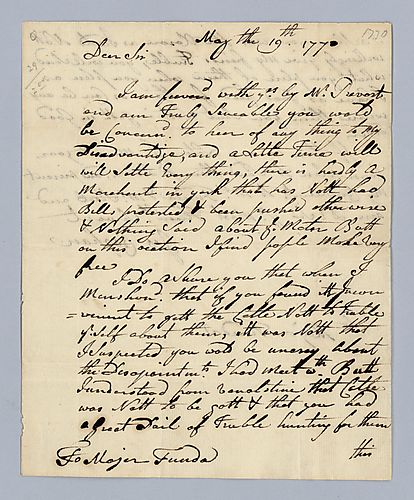 May the 19th 1770
1770
Dear Sir
I am favoured with yrs by Mr. Prevost,
and am Truly Senceable you would
be Concernd to hear of any thing to My
Disadvantidge, and a Little Time will
will Settle Every thing, there is hardly a
Merchant in york that has Nott had
Bills protested & been pushed otherwise
& Nothing Said about ye Mater Butt
on this ocation I find pople Make very
free
I Do ashure you that when I
Menshon'd that if you found itt Incon
=venient to gett the Catle Nott to Truble
yr Self about them, itt was Nott that
I Suspected you wold be uneasy about
the Desapointmts I had Meet wth. Butt
I understood from that Catle
was Nott to be gott & that you had
a Great Dail of Truble hunting for them
this
To Majer Funda